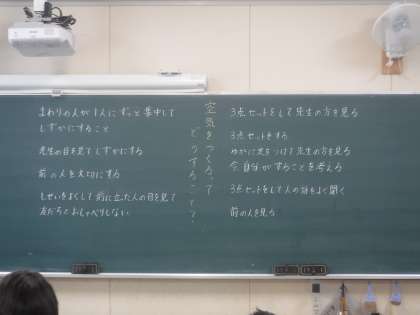 まわりの人が1人にずっと集中して
しずかにすること
先生の目を見てしずかにする
前の人を大切にする
しせいをよくして前に立った人の目を見て
友だちとおしゃべりしない
空気をつくるって
どうすること?
3点セットをして先生の方を見る
3点セットをする
ゆかに足をつけて先生の方を見る
今自分がすることを考える
3点セットをして人の話をよく聞く
前の人を見る